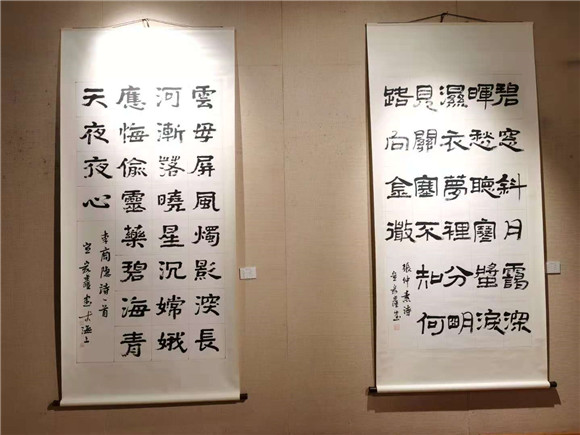 雲母屏風燭影深長
河漸落曉星沉嫦娥
應悔偷靈藥碧海青
天夜夜心
李商隱詩一首
宣家鑫書於滬上
碧窓斜月靄深
暉愁聽寒螿淚
濕衣夢裡分明
見關塞不知何
路向金微
張仲素詩
宣家鑫書